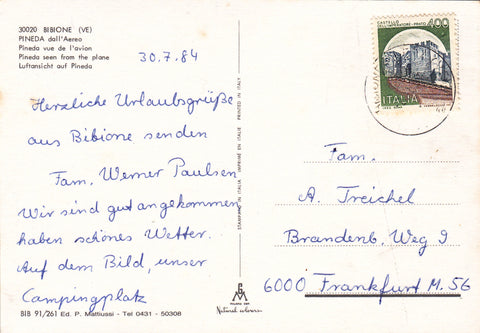 30020 BIBIONE (VE)
PINEDA dall'Aereo
Pineda vue de l'avion
Pineda seen from the plane
Luftansicht auf Pineda
30.7.84
Herzliche Urlaubsgrüße
aus Bibione senden
Fam. Werner Paulsen
Wir sind gut angekommen
haben schönes Wetter.
Auf dem Bild, unser
Campingplatz
BIB 91/261 Ed. P. Mattiussi - Tel 0431 - 50308
STAMPATO IN ITALIA IMPRIMÉ EN ITALIE PRINTED IN ITALY
Natural colours
CASTELLO
DELL'IMPERATORE - PRATO
400
ITALIA
Fam.
A. Treichel
Brandenb. Weg 9
6000 Frankfurt M. 56